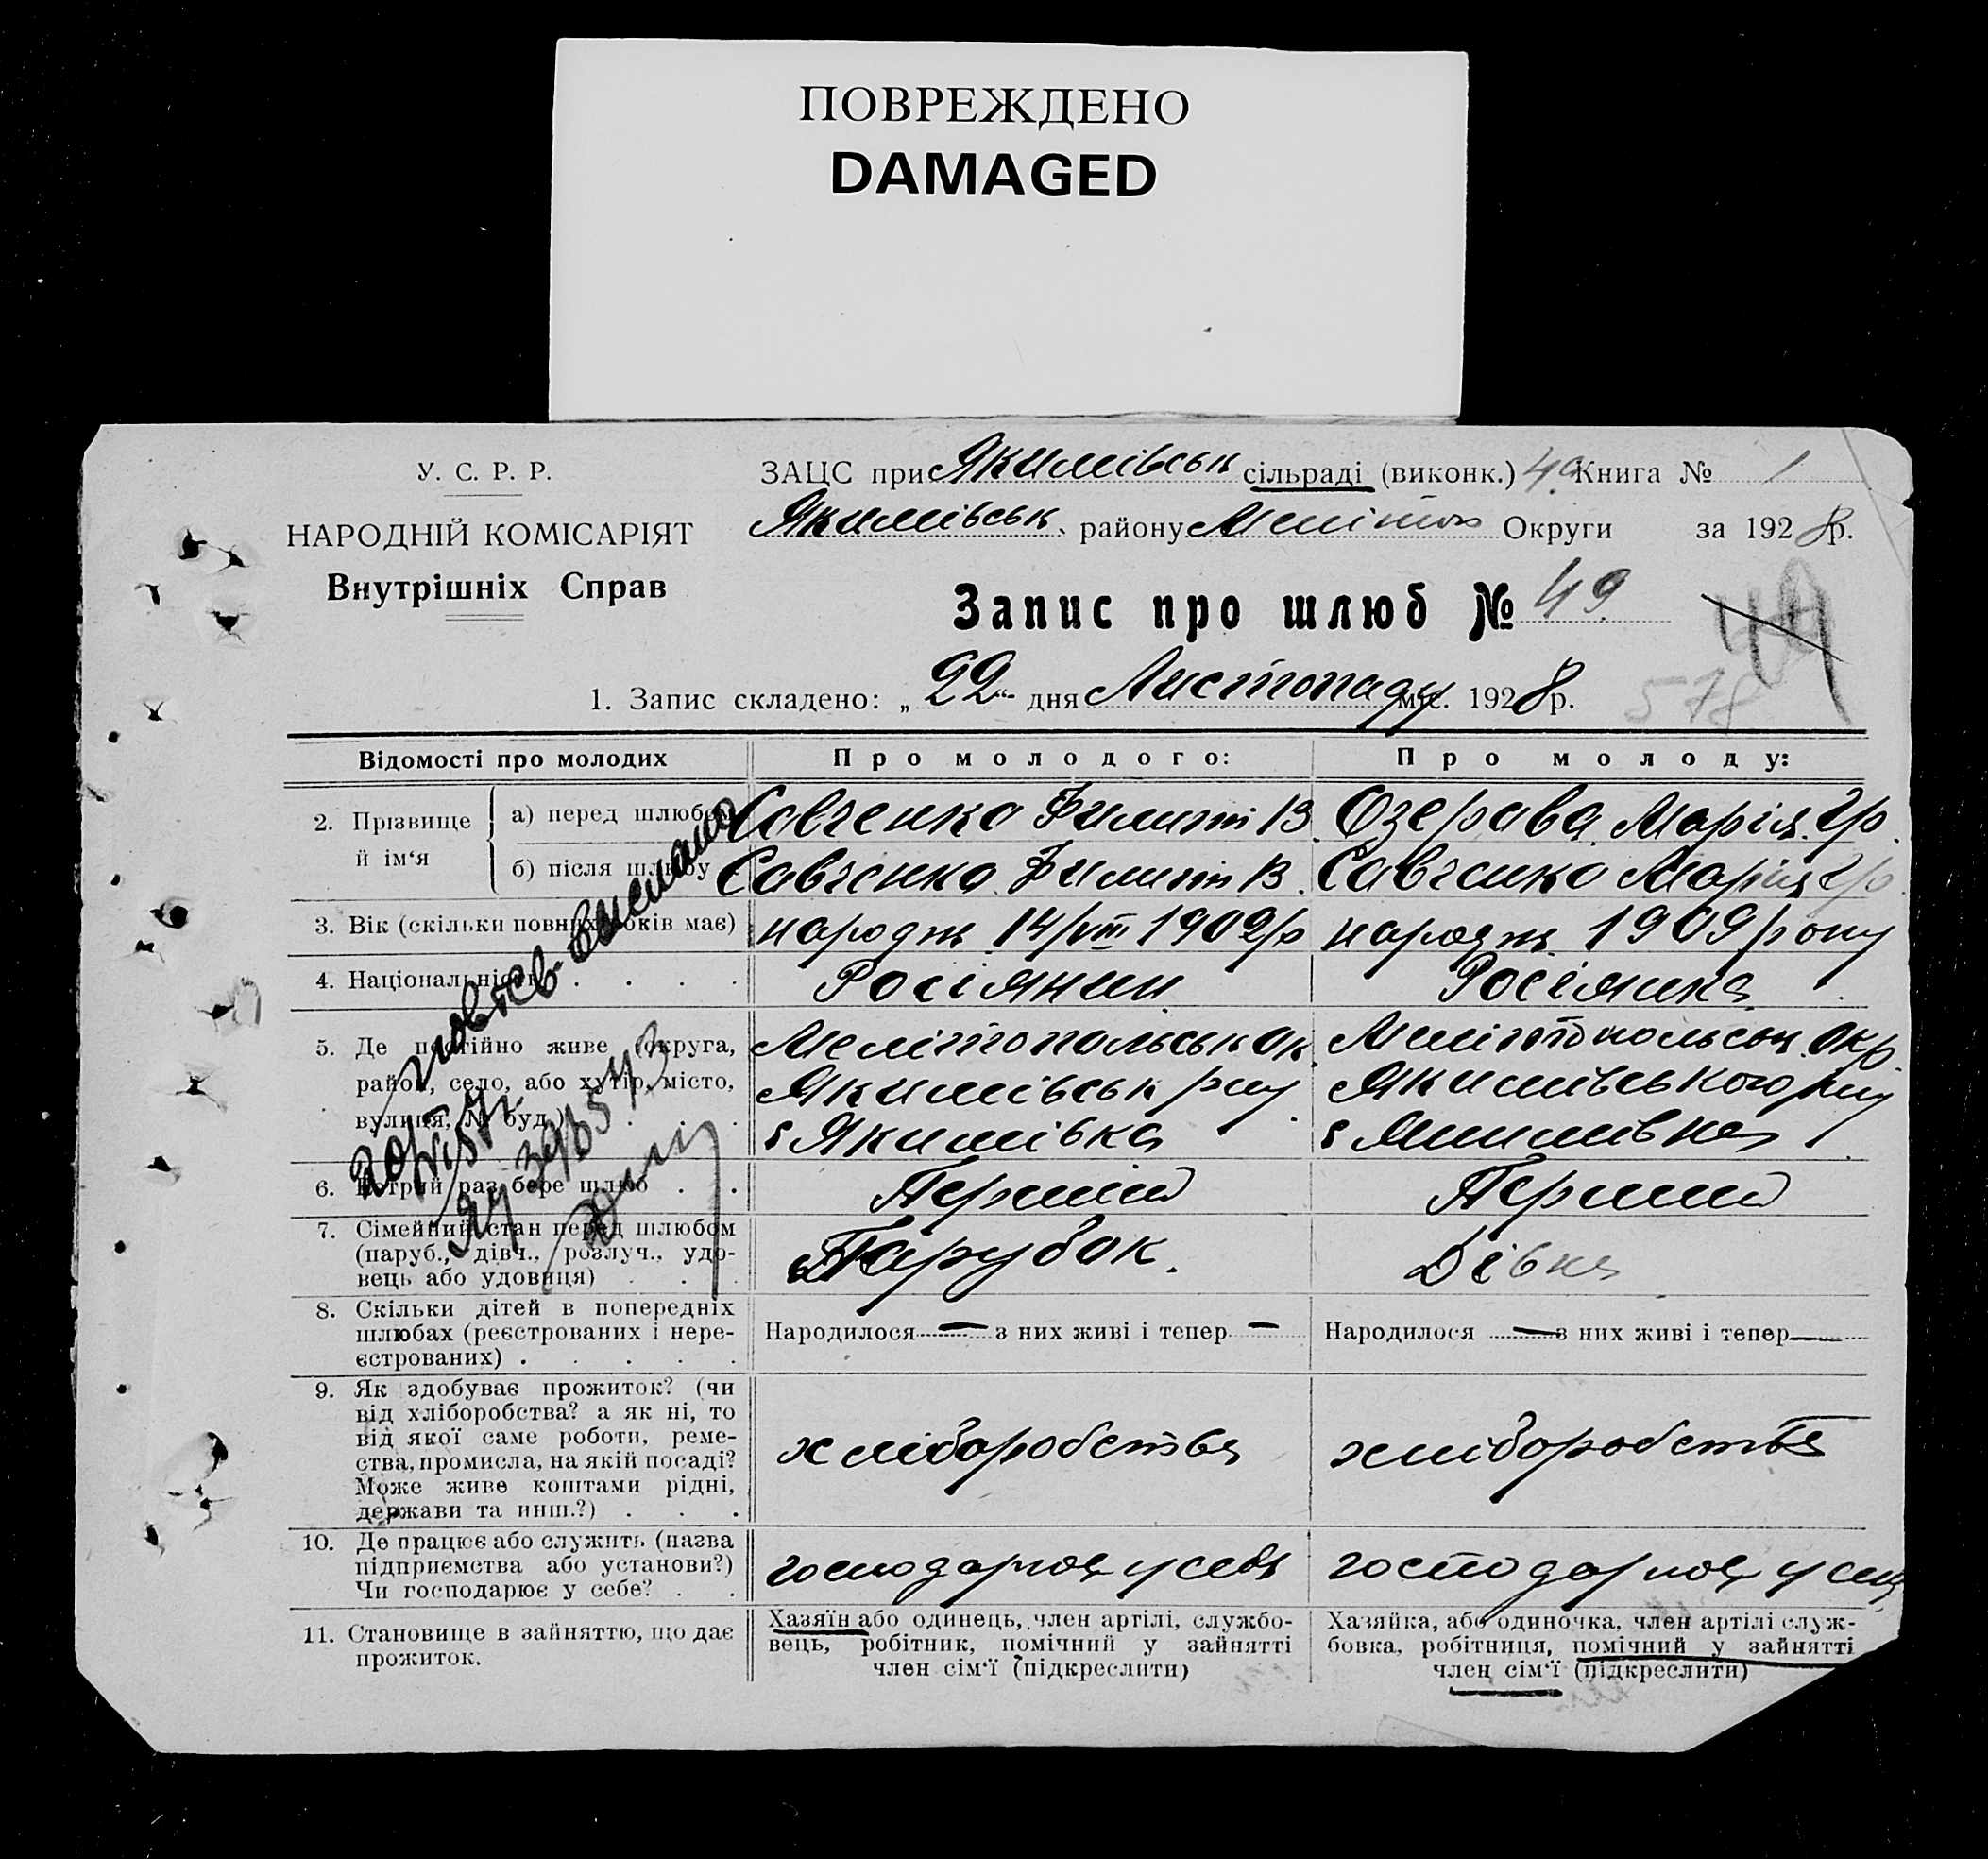 ПОВРЕЖДЕНО
DAMAGED
У. С. Р. Р.
НАРОДНІЙ КОМІСАРІЯТ
Внутрішніх Справ
ЗАЦС при Якимівськ сільраді (виконк.) Книга № 1
Якимівськ. району Меліт Округи за 1928 р.
Запис про шлюб № 49
49
578
1. Запис складено: „ 22 “ дня Листопаду міс. 1928 р.
Відомості про молодих
Про молодого:
Про молоду:
2. Прізвище й ім‘я
а) перед шлюбом
Савченко Филипп В.
Озерова Марія Гр.
б) після шлюбу
Савченко Филипп В.
Савченко Марія Гр.
3. Вік (скільки повних років має)
народж 14/VIII 1909 р
народж 1909 року
4. Національність . . . .
Росіянин
Росіянка
5. Де постійно живе (округа,
район, село, або хутір, місто,
вулиця, № буд.) . . .
Мелітопольськ Ок.
Якимівськ р-ну
с Якимівка
Мелітопольськ. Окр.
Якимівського р-ну
с Якимівка
6. Котрий раз бере шлюб . .
Перший
Перший
7. Сімейний стан перед шлюбом
(паруб., дівч., розлуч., удо-
вець або удовиця) . . .
Парубок.
Дівка
8. Скільки дітей в попередніх
шлюбах (реєстрованих і нере-
єстрованих) . . . . .
Народилося — з них живі і тепер —
Народилося — з них живі і тепер —
9. Як здобуває прожиток? (чи
від хліборобства? а як ні, то
від якої саме роботи, реме-
ства, промисла, на якій посаді?
Може живе коштами рідні,
держави та инш.?) . . .
хліборобства
хліборобства
10. Де працює або служить (назва
підприємства або установи?)
Чи господарює у себе? . .
господарює у себе
господарює у себе
11. Становище в зайняттю, що дає
прожиток.
Хазяїн або одинець, член артілі, службо-
вець, робітник, помічний у зайнятті
член сім‘ї (підкреслити)
Хазяйка, або одиночка, член артілі служ-
бовка, робітниця, помічний у зайнятті
член сім‘ї (підкреслити)